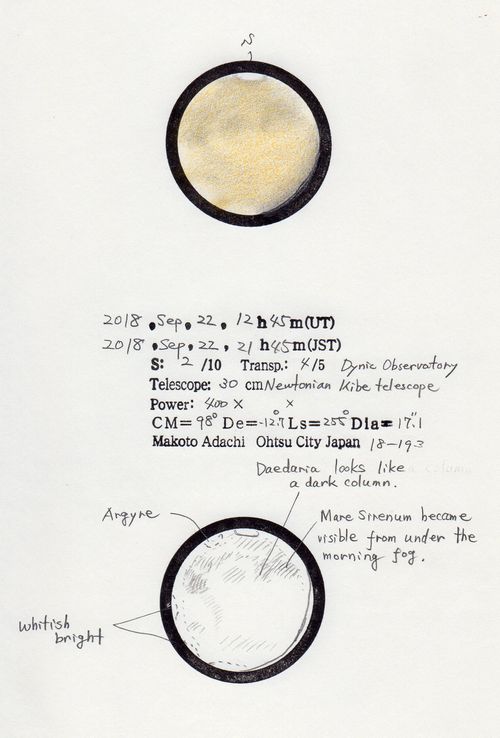 S
2018, Sep, 22, 12h45m(UT)
2018, Sep, 22, 21h45m(JST)
S: 2 /10 Transp.: 4/5 Dynic Observatory
Telescope: 30 cm Newtonian Kibe telescope
Power: 400 × ×
CM= 98° De= -12.°7 Ls= 255° Dia= 17."1
Makoto Adachi Ohtsu City Japan 18-193
Daedaria looks like
a dark column.
Argyre
Mare Sirenum became
visible from under the
morning fog.
whitish
bright